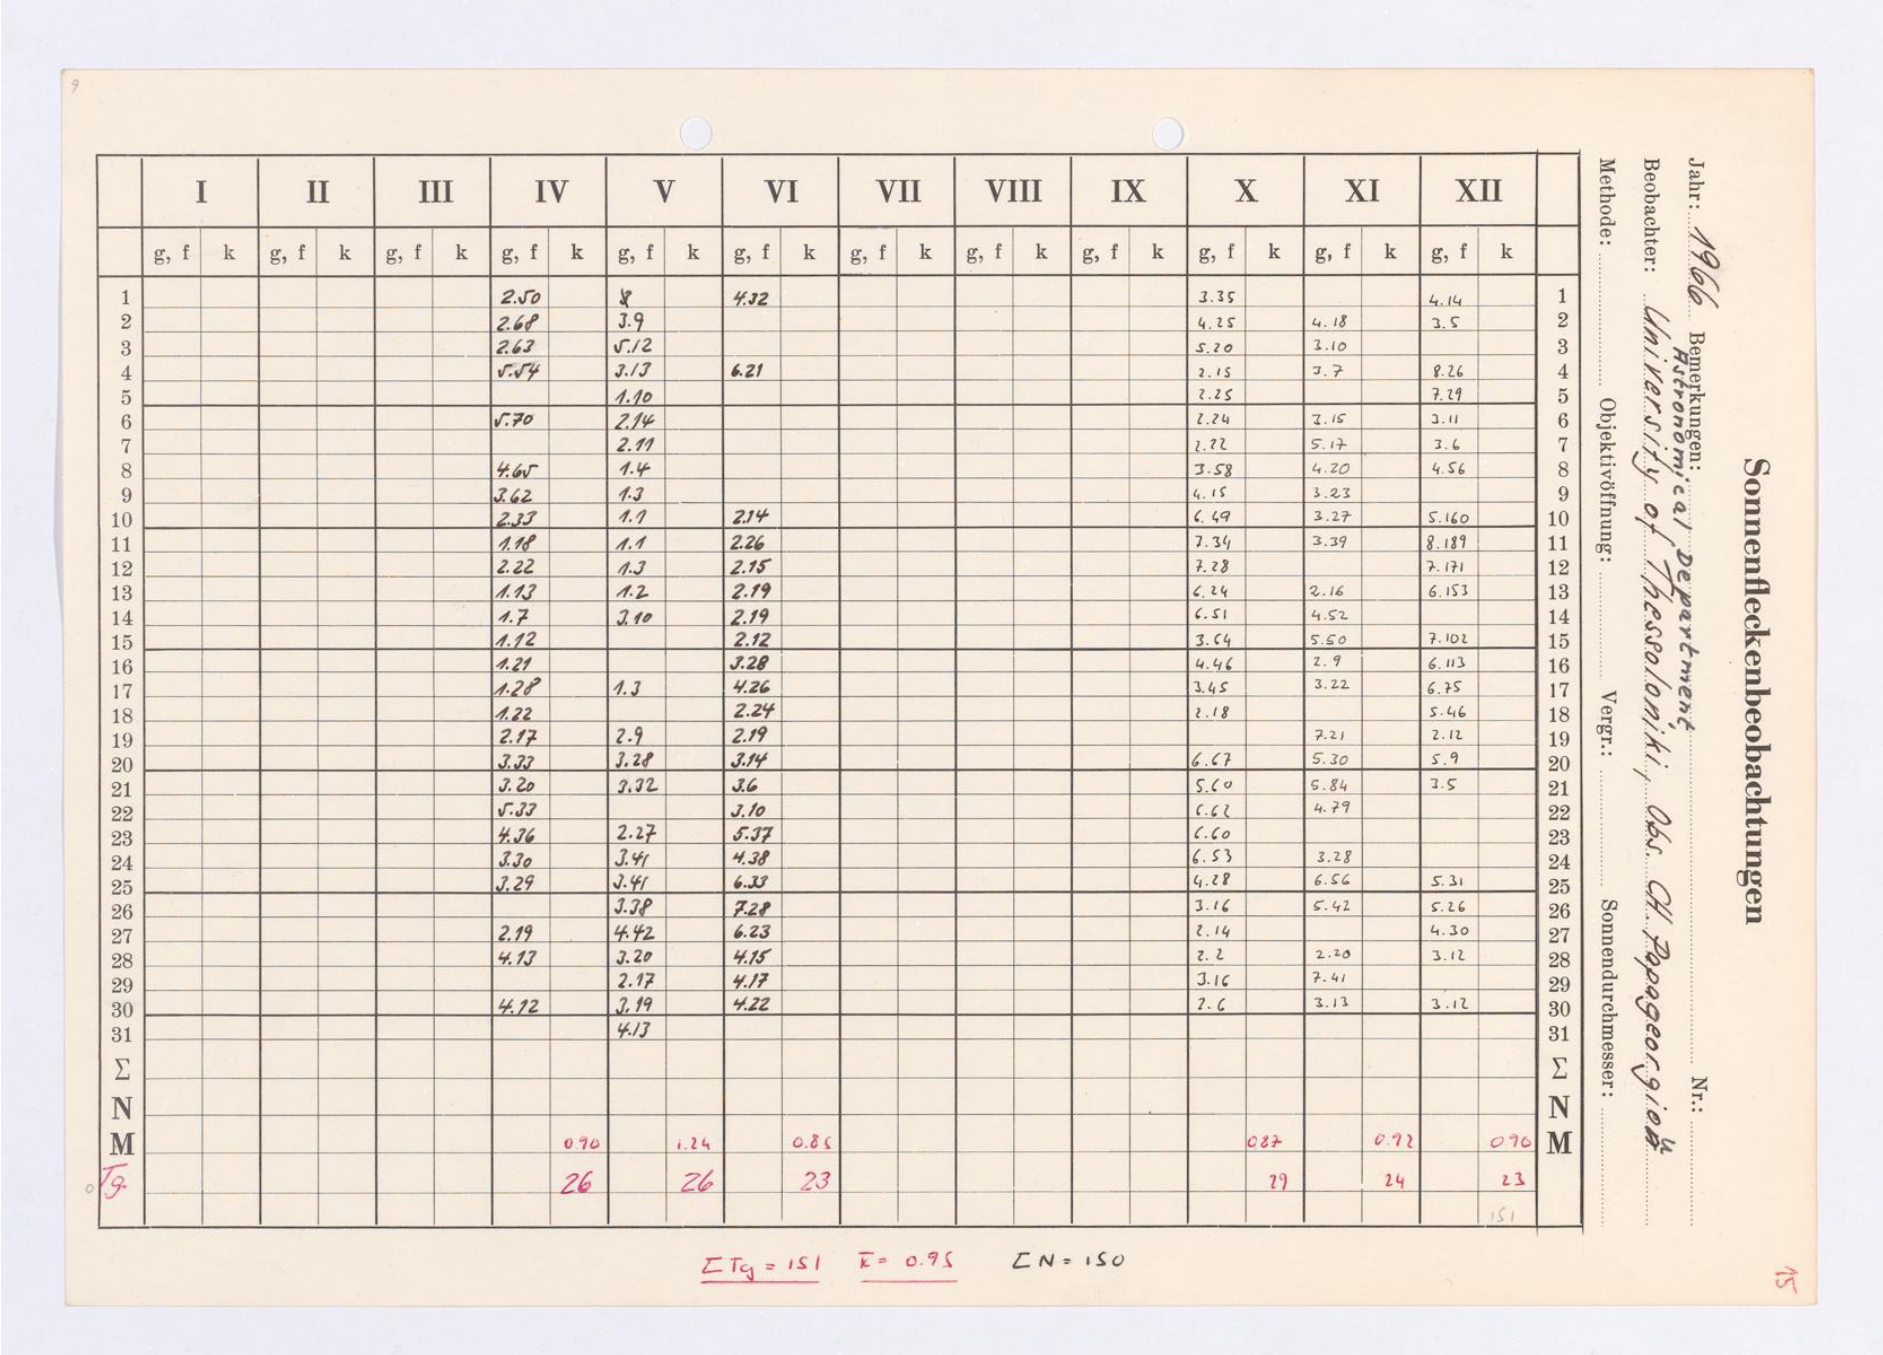 Sonnenfleckenbeobachtungen
Jahr: 1966 Bemerkungen: Astronomical Department Nr.:
Beobachter: University of Thessaloniki, Obs. CH. Papageorgiou
Methode: Objektivöffnung: Vergr.: Sonnendurchmesser:
I II III IV V VI VII VIII IX X XI XII
g, f k g, f k g, f k g, f k g, f k g, f k g, f k g, f k g, f k g, f k g, f k g, f k
1 2.50 4.32 3.35 4.14 1
2 2.68 3.9 4.25 4.18 3.5 2
3 2.63 5.12 5.20 3.10 3
4 5.54 3.13 6.21 2.15 3.7 8.26 4
5 1.10 2.25 7.29 5
6 5.70 2.14 2.24 3.15 3.11 6
7 2.11 2.22 5.17 3.6 7
8 4.65 1.4 3.58 4.20 4.56 8
9 3.62 1.3 4.15 3.23 9
10 2.33 1.1 2.14 6.49 3.27 5.160 10
11 1.18 1.1 2.26 7.34 3.39 8.189 11
12 2.22 1.3 2.15 7.28 7.171 12
13 1.13 1.2 2.19 6.24 2.16 6.153 13
14 1.7 3.10 2.19 6.51 4.52 14
15 1.12 2.12 3.64 5.50 7.102 15
16 1.21 3.28 4.46 2.9 6.113 16
17 1.28 1.3 4.26 3.45 3.22 6.75 17
18 1.22 2.24 2.18 5.46 18
19 2.17 2.9 2.19 7.21 2.12 19
20 3.33 3.28 3.14 6.67 5.30 5.9 20
21 3.20 3.32 3.6 5.60 5.84 3.5 21
22 5.33 3.10 6.62 4.79 22
23 4.36 2.27 5.37 6.60 23
24 3.30 3.41 4.38 6.53 3.28 24
25 3.29 3.41 6.33 4.28 6.56 5.31 25
26 3.38 7.28 3.16 5.42 5.26 26
27 2.19 4.42 6.23 2.14 4.30 27
28 4.13 3.20 4.15 2.2 2.20 3.12 28
29 2.17 4.17 3.16 7.41 29
30 4.12 3.19 4.22 2.6 3.13 3.12 30
31 4.13 31
Σ Σ
N N
M 0.90 1.24 0.85 0.87 0.92 0.90 M
Tg. 26 26 23 29 24 23
151
ΣTg = 151 k̄ = 0.95 ΣN = 150
15
9